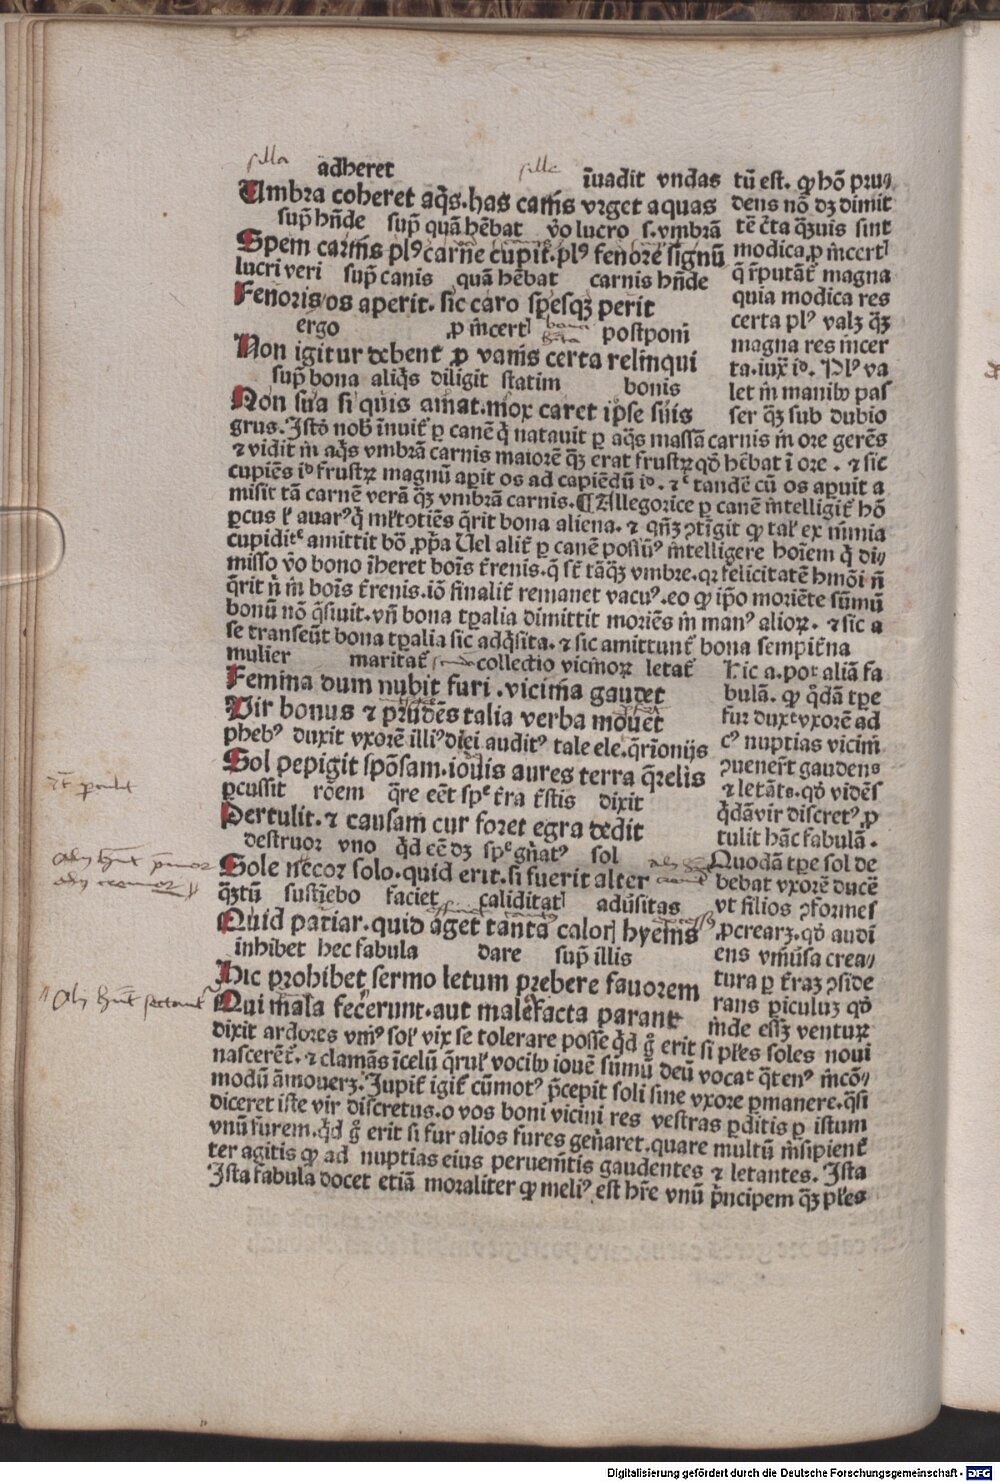 adheret īuadit vndas
Umbra coheret aq̄s. has camīs vrget aquas
sup̄ hn̄de sup̄ quā hēbat v̊o lucro s. vmbrā
Spem carnīs plꝰ carne cupit. plꝰ fenore signū
lucri veri sup̄ canis quā hēbat carnis hn̄de
Fenoris os aperit. sic caro spesqꝫ perit
ergo ꝓ incert postponi
Non igitur debent ꝓ vanis certa relinqui
sup̄ bona aliq̄s diligit statim bonis
Non sua si quis amat. mox caret ipse suis
tū est. ꝙ hō pru⸗
dens nō dꝫ dimit
tē c̄ta q̄ꝫuis sint
modica ꝓ incert
q̄ r̄putāt̄ magna
quia modica res
certa plꝰ valꝫ q̄ꝫ
magna res incer
ta. iux̄ iḋ. Plꝰ va
let in manibꝰ pas
ser q̄ꝫ sub dubio
grus. Istō nob̄ īnuit̄ ꝑ canē q̄ natauit ꝑ aq̄s massā carnis in ore gerēs
⁊ vidit in aq̄s vmbrā carnis maiorē q̄ꝫ erat frustꝝ qḋ hēbat ī ore. ⁊ sic
cupiēs iḋ frustꝝ magnū aꝑit os ad capiēdū iḋ. ⁊ tandē cū os aꝑuit a
misit tā carnē verā q̄ꝫ vmbrā carnis. ¶ Allegorice ꝑ canē intelligit̄ hō
ꝑcus ł auarꝰ q̄ ml̄totiēs q̄rit bona aliena. ⁊ qn̄ꝫ ↄtīgit ꝙ tał ex nimia
cupidit̄e amittit bō ꝓp̄a Uel alit̄ ꝑ canē possūꝰ intelligere hoīem q̄ di⸗
misso v̊o bono īheret boīs t̄renis. q̄ st̄ tāq̄ꝫ vmbre. qꝛ felicitatē hmōi n̄
q̄rit n̄ in boīs t̄renis. iō finalit̄ remanet vacuꝰ. eo ꝙ ip̄o moriēte sūmū
bonū nō q̄siuit. vn̄ bona tꝑalia dimittit moriēs in manꝰ alioꝝ. ⁊ sic a
se transeūt bona tꝑalia sic adq̄sita. ⁊ sic amittunt̄ bona sempit̄na
mulier maritat̄ collectio vicinoꝝ letat̄
Femina dum nubit furi. vicinia gaudet
Vir bonus ⁊ prudēs talia verba mouet
phebꝰ duxit vxorē illiꝰ diei auditꝰ tale ele. q̄rīonijs
Sol pepigit spōsam. iouis aures terra q̄relis
ꝑcussit rōem q̄re eēt t̄ra t̄stis dixit
Pertulit. ⁊ causam cur foret egra dedit
destruor vno q̄d eē dꝫ gn̄atꝰ sol
Sole necor solo. quid erit. si fuerit alter
q̄ꝫtū sustīebo faciet caliditat adūsitas
Quid patiar. quid aget tanta calor hyems
inhibet hec fabula dare sup̄ illis
Hic prohibet sermo letum prebere fauorem
Qui mala fecerunt. aut malefacta parant
Hic a. pot aliā fa
bulā. ꝙ q̄dā tꝑe
fur dux vxorē ad
cꝰ nuptias vicini
ↄuener̄t gaudens
⁊ letāts. qḋ vidēs
q̄dā vir discretꝰ. ꝓ
tulit hāc fabulā.
Quodā tꝑe sol de
bebat vxorē ducē
vt filios ↄformes
ꝓcrearꝫ. qḋ audi
ens vniūsa crea⸗
tura ꝑ t̄raꝫ ↄside
rans ꝑiculuꝫ qḋ
inde essꝫ venturꝝ
dixit ardores vniꝰ soł vix se tolerare posse q̄d g̊ erit si pl̄es soles noui
nascerēt̄. ⁊ clamās īcelū q̄ruł vocibꝰ iouē sūmū deū vocat q̄tenꝰ incō⸗
modū āmouerꝫ. Jupit̄ igit̄ cūmotꝰ p̄cepit soli sine vxore ꝑmanere. q̄si
diceret iste vir discretus. o vos boni vicini res vestras ꝑditis ꝑ istum
vnū furem. q̄d g̊ erit si fur alios fures gen̄aret. quare multū insipient̄
ter agitis ꝙ ad nuptias eius peruenītis gaudentes ⁊ letantes. Ista
Ista fabula docet etiā moraliter ꝙ meliꝰ est hr̄e vnū p̄ncipem q̄ꝫ pl̄es
Digitalisierung gefördert durch die Deutsche Forschungsgemeinschaft - DFG